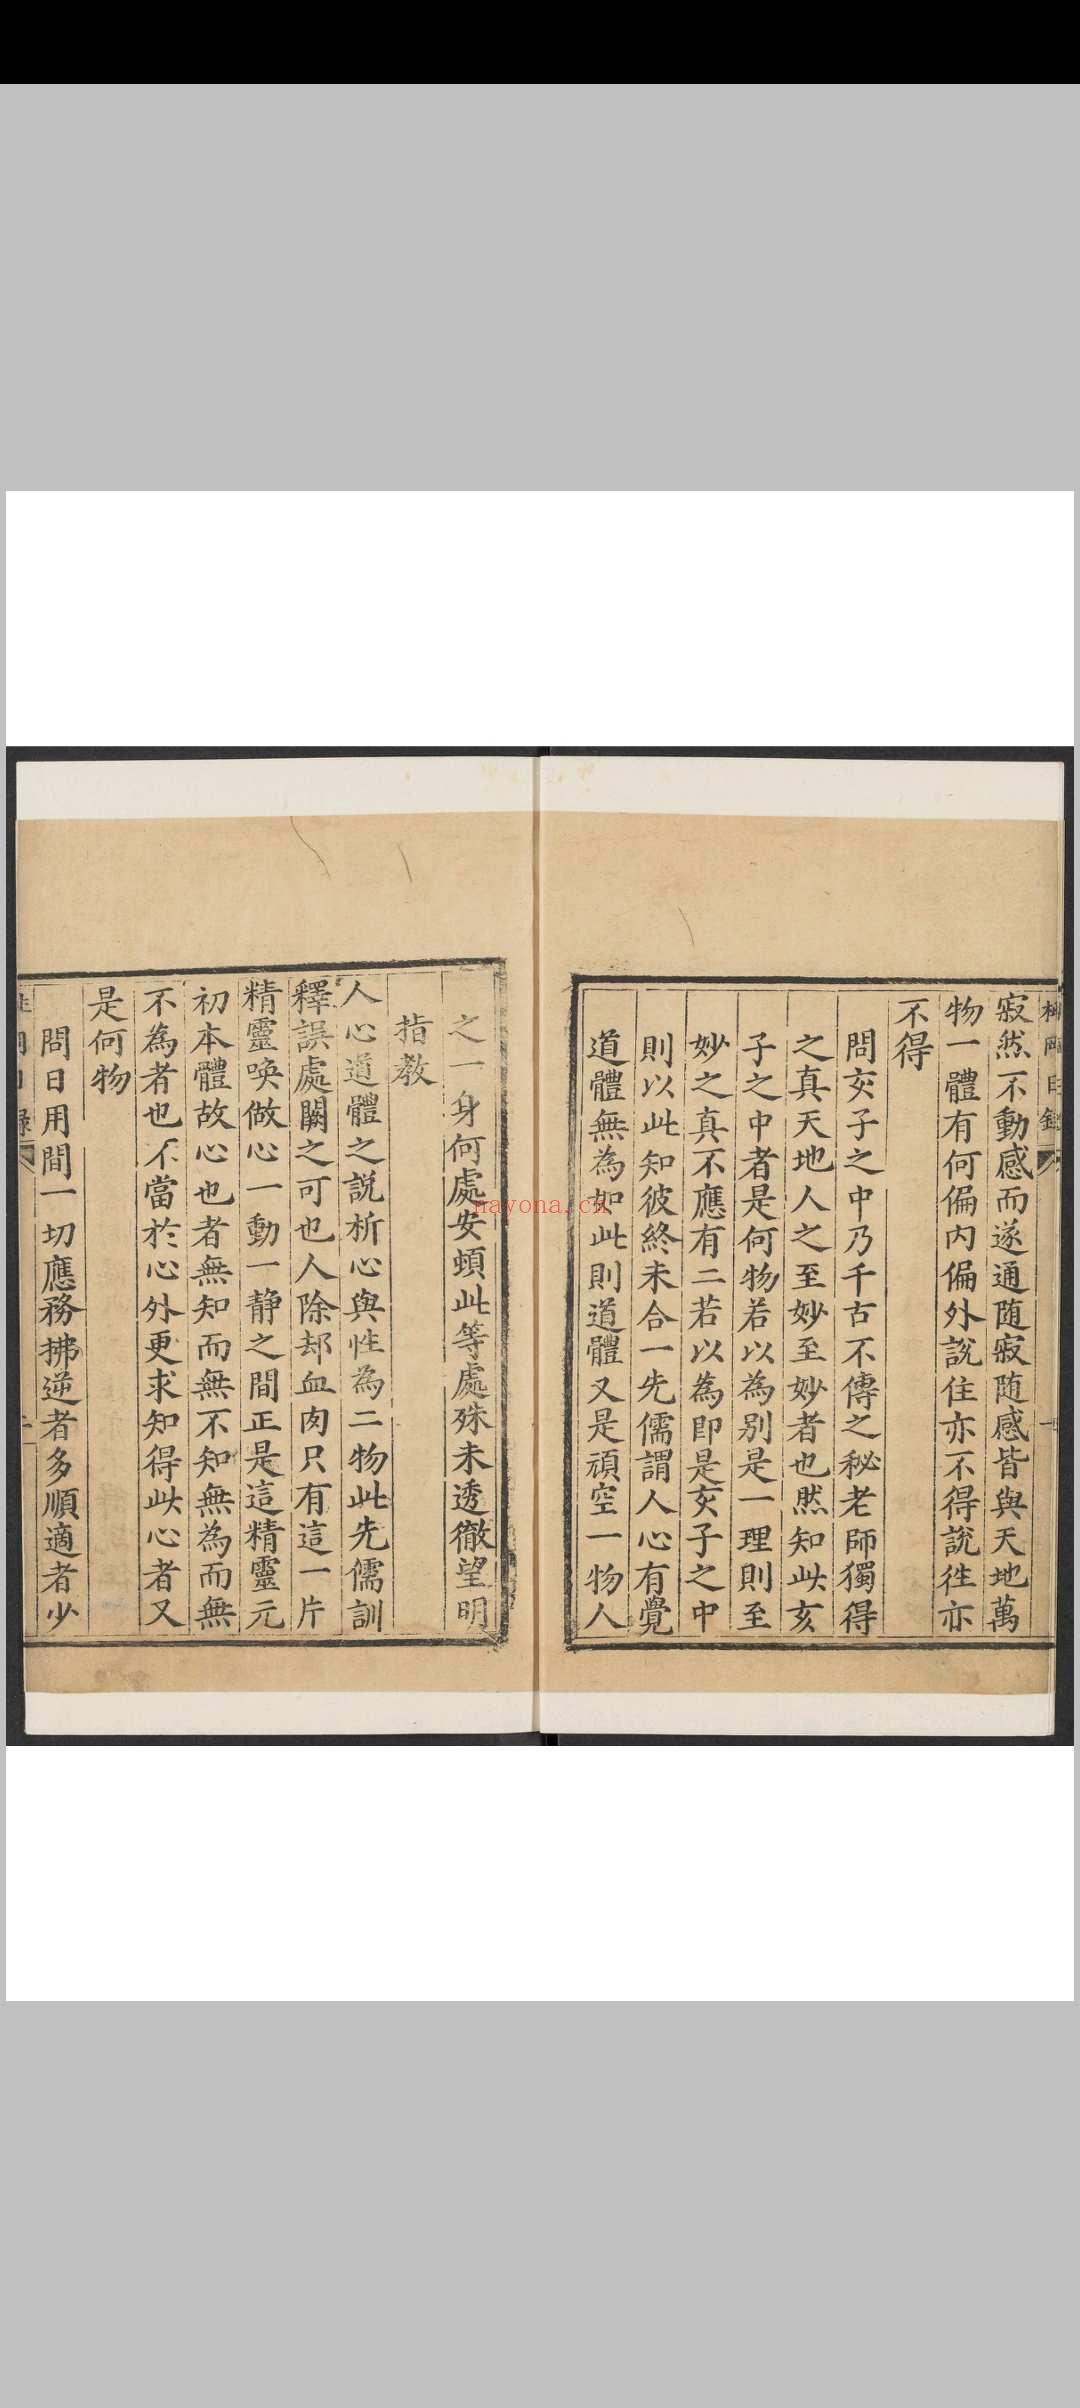 寂然不動感而遂通随寂随感皆與天地萬
物一體有何偏内偏外説住亦不得説徃亦
不得
問亥子之中乃千古不傳之秘老師獨得
之真天地人之至妙至妙者也然知此亥
子之中者是何物若以為别是一理則至
妙之真不應有二若以為即是亥子之中
則以此知彼終未合一先儒謂人心有覺
道體無為如此則道體又是頑空一物人
之一身何處安頓此等處殊未透徹望明
指教
人心道體之説析心與性為二物此先儒訓
釋誤處闕之可也人除却血肉只有這一片
精靈唤做心一動一静之間正是這精靈元
初本體故心也者無知而無不知無為而無
不為者也不當於心外更求知得此心者又
是何物
問日用間一切應務拂逆者多順適者少
nayona.cn